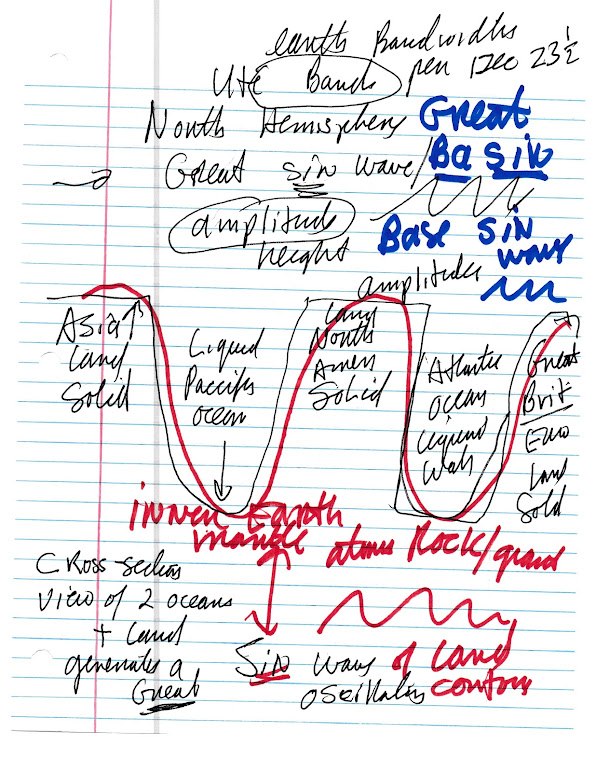 earth Bandwidths
Ute Bands per Dec 23 1/2
North Hemisphere
Great
→ Great sin wave/
Ba Sin
amplitude
height
Base SiN
wave
amplitudes
Asia
Land
Solid
Liquid
Paccifis
ocean
Land
North
Amer
Solid
Atlantic
ocean
Liquid
Great
Brit
Euro
Land
Solid
inner Earth
mantle atoms Rock/
Cross-section
view of 2 oceans
+ Land
generates a
Great
Sin wave of Land
oscillators contours